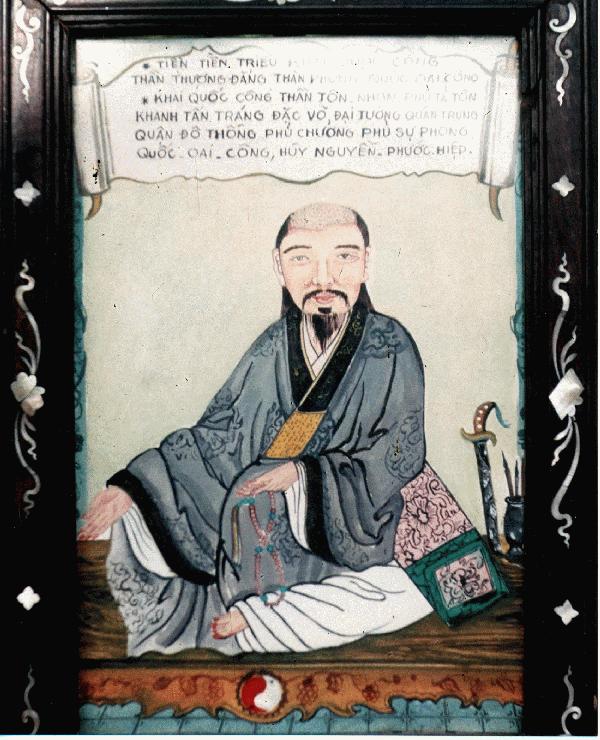 * TIỀN TIỀN TRIỀU CÔNG
THẦN THƯỢNG ĐẲNG THẦN QUỐC OAI CÔNG
* KHAI QUỐC CÔNG THẦN TÔN NHƠN PHỦ TẢ TÔN
KHANH TẤN TRANG ĐẶC VÕ, ĐẠI TƯỚNG QUÂN TRUNG
QUÂN ĐÔ THỐNG PHỦ CHƯỞNG PHỦ SỰ PHONG
QUỐC - OAI - CÔNG, HÚY NGUYỄN - PHƯỚC - HIỆP.